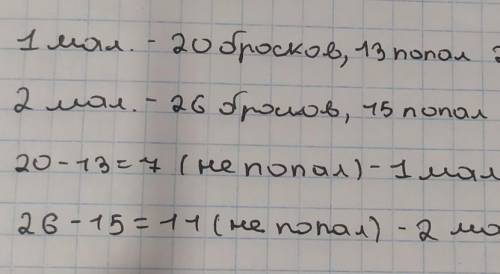 1 мал. - 20 бросков, 13 попал
2 мал. - 26 бросков, 15 попал
20 - 13 = 7 (не попал) - 1 мал
26 - 15 = 11 (не попал) - 2 мо